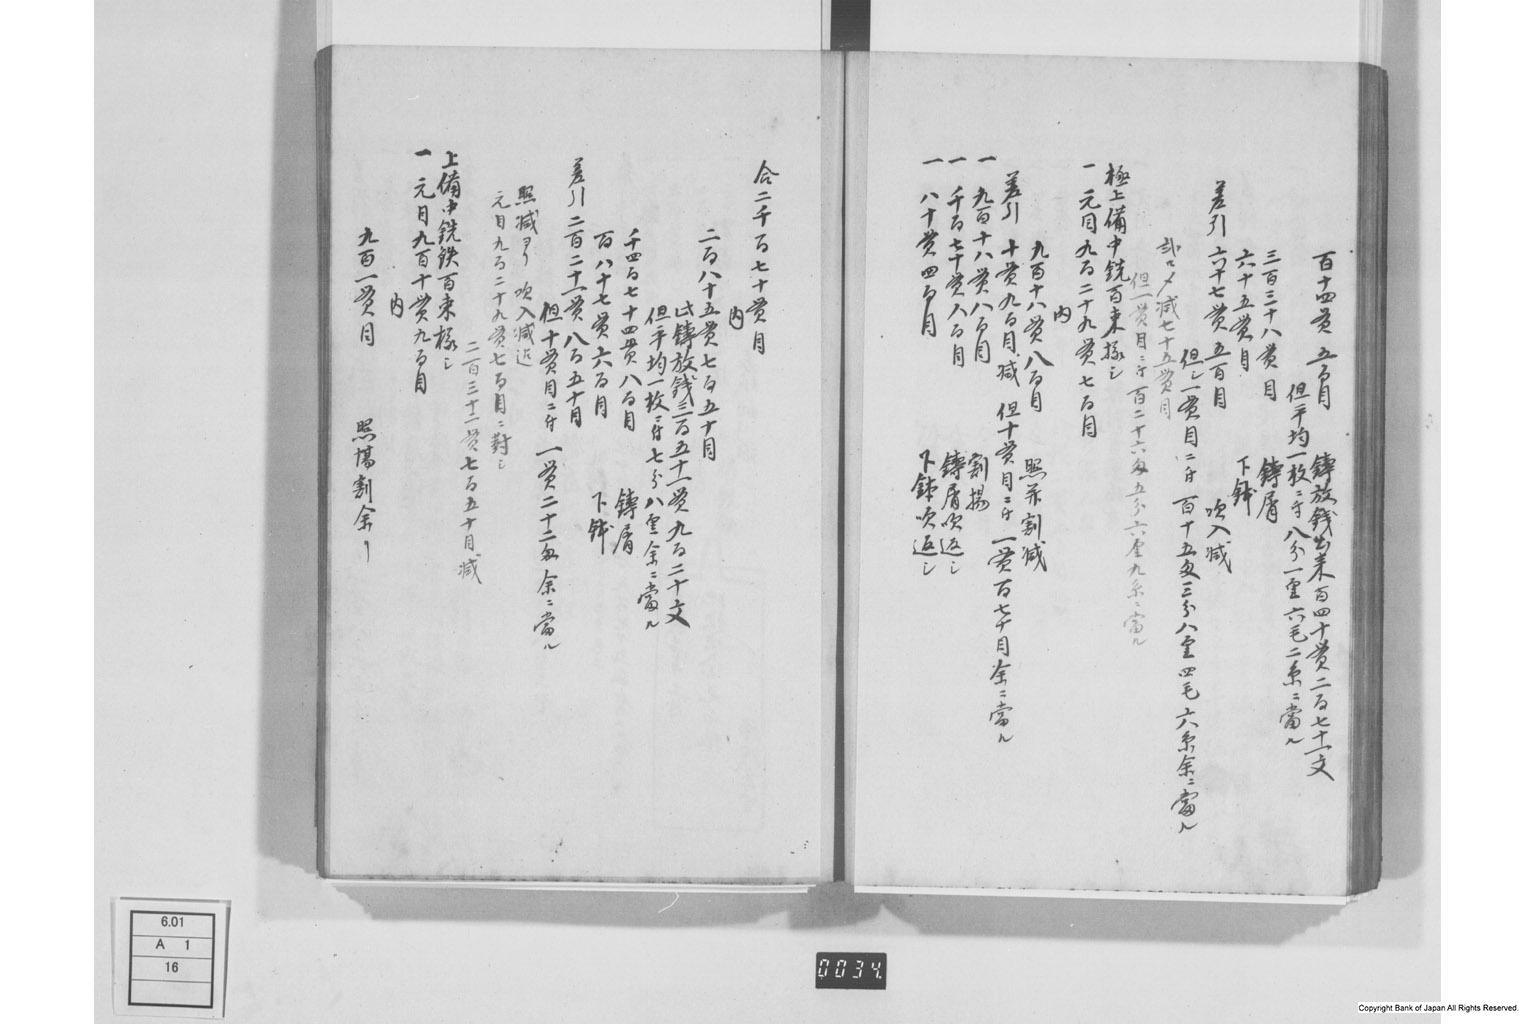 百十四貫五百目 鋳放銭出来百四十貫二百七十一文
但平均一枚ニ付八分一厘六毛二糸ニ當ル
三百三十八貫目 鋳屑
六十五貫目 下鉢
差引六十七貫五百目 吹入減
但シ一貫目ニ付百十五匁三分八厘四毛六糸余ニ當ル
減七十五貫目
但一貫目ニ付百二十六匁五分六厘九糸ニ當ル
極上備中銑百束様シ
一 元目九百二十九貫七百目
内
九百十八貫八百目 照并割減
差引 十貫九百目減 但十貫目ニ付一貫百七十目余ニ當ル
一 九百十八貫八百目 割揚
一 千百七十貫八百目 鋳屑吹返シ
一 八十貫四百目 下鉢吹返シ
合二千百七十貫目
内
二百八十五貫七百五十目
此鋳放銭三百五十一貫九百二十文
但平均一枚ニ付七分八厘余ニ當ル
千四百七十四貫八百目 鋳屑
百八十七貫六百目 下鉢
差引二百二十一貫八百五十目
但十貫目ニ付一貫二十二匁余ニ當ル
照減ヨリ吹入減迄
元目九百二十九貫七百目ニ對シ
二百三十二貫七百五十目減
上備中銑鉄百束様シ
一 元目九百十貫九百目
内
九百一貫目 照揚割余リ
6.01
A 1
16
0034
Copyright Bank of Japan All Rights Reserved.